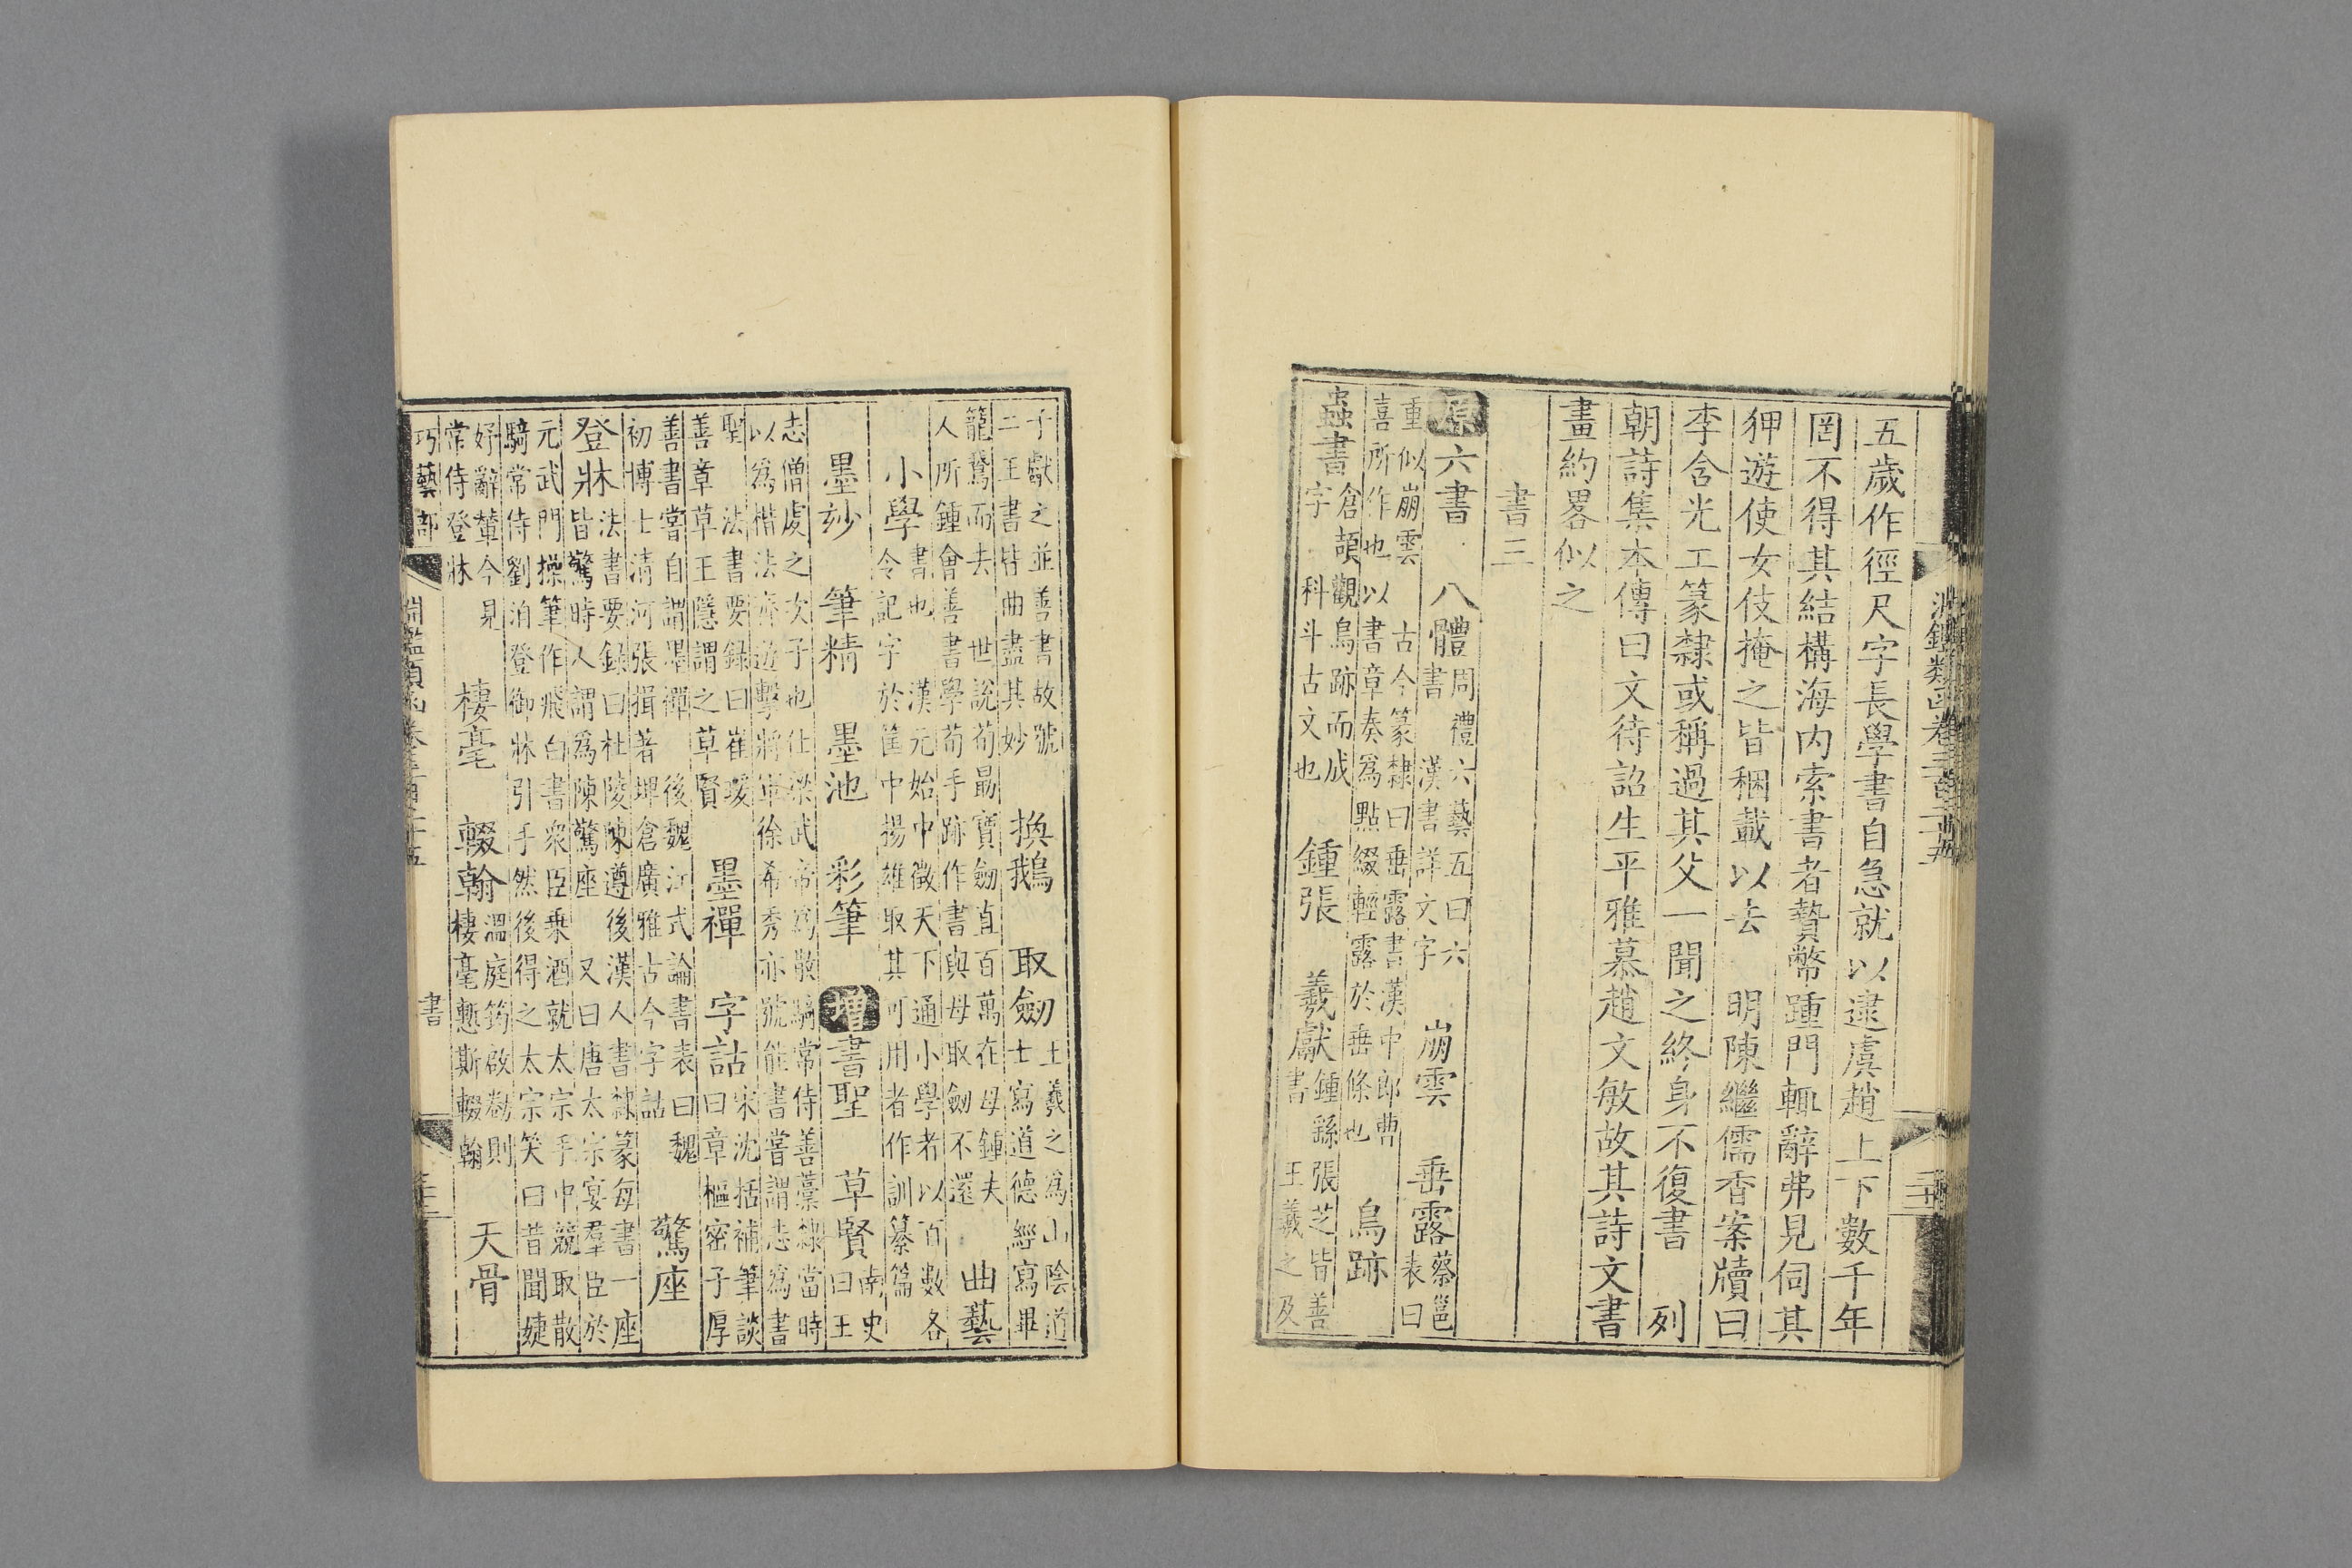 淵鑑類函卷三百二十五
五歲作徑尺字長學書自急就以逮虞趙上下數千年
罔不得其結構海内索書者贄幣踵門輒辭弗見伺其
狎遊使女伎掩之皆稛載以去 明陳繼儒香案牘曰
李含光工篆隸或稱過其父一聞之終身不復書 列
朝詩集本傳曰文待詔生平雅慕趙文敏故其詩文書
畫約畧似之
書三
原六書 八體 周禮六藝五曰六
書 漢書詳文字 崩雲 垂露 蔡邕
表曰
重似崩雲 古今篆隸曰垂露書漢中郎曹
喜所作也以書章奏爲點綴輕露於垂條也 鳥跡
蟲書 倉頡觀鳥跡而成
字 科斗古文也 鍾張 羲獻 鍾繇張芝皆善
書 王羲之及
子獻之並善書故號
二王書皆曲盡其妙 換鵝 取劒 王羲之爲山陰道
士寫道德經寫畢
籠鵞而去 世說荀勗寶劒直百萬在母鍾夫
人所鍾會善書學荀手跡作書與母取劒不還 曲藝
小學 書也 漢元始中徵天下通小學者以百數各
令記字於筐中揚雄取其可用者作訓纂篇
墨妙 筆精 墨池 彩筆 增書聖 草賢 南史
曰王
志僧虔之次子也仕梁武帝爲散騎常侍善藁隸當時
以爲楷法齊遊擊將軍徐希秀亦號能書嘗謂志爲書
聖 法書要錄曰崔瑗
善章草王隱謂之草賢 墨禪 字詁 宋沈括補筆談
曰章樞密子厚
善書嘗自謂墨禪 後魏江式論書表曰魏
初博士清河張揖著埤倉廣雅古今字詁 驚座
登牀 法書要錄曰杜陵陳遵後漢人書隸篆每書一座
皆驚時人謂爲陳驚座 又曰唐太宗宴羣臣於
元武門操筆作飛白書衆臣乗酒就太宗手中競取散
騎常侍劉洎登御牀引手然後得之太宗笑曰昔聞婕
妤辭輦今見
常侍登牀 棲毫 輟翰 溫庭筠啟勑則
棲毫慙斯輟翰 天骨
巧藝部 淵鑑類函卷三百二十五 書